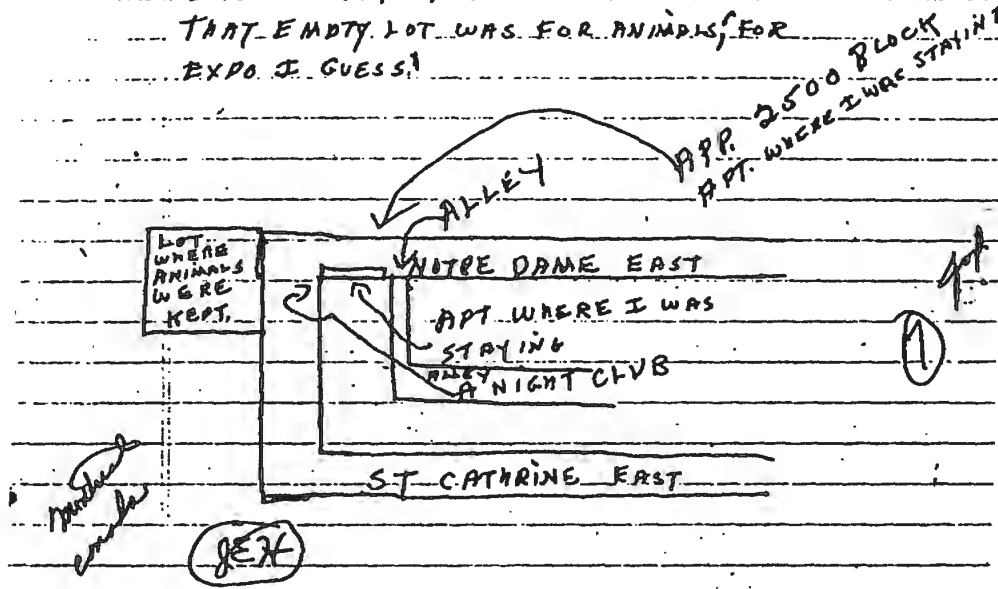 THAT EMPTY LOT WAS FOR ANIMALS, FOR
EXPO I GUESS.
APP. 2500 BLOCK
APT. WHERE I WAS STAYING
ALLEY
LOT
WHERE
ANIMALS
WERE
KEPT.
NOTRE DAME EAST
APT WHERE I WAS
STAYING
ALLEY
A NIGHT CLUB
1
ST CATHRINE EAST
JEH